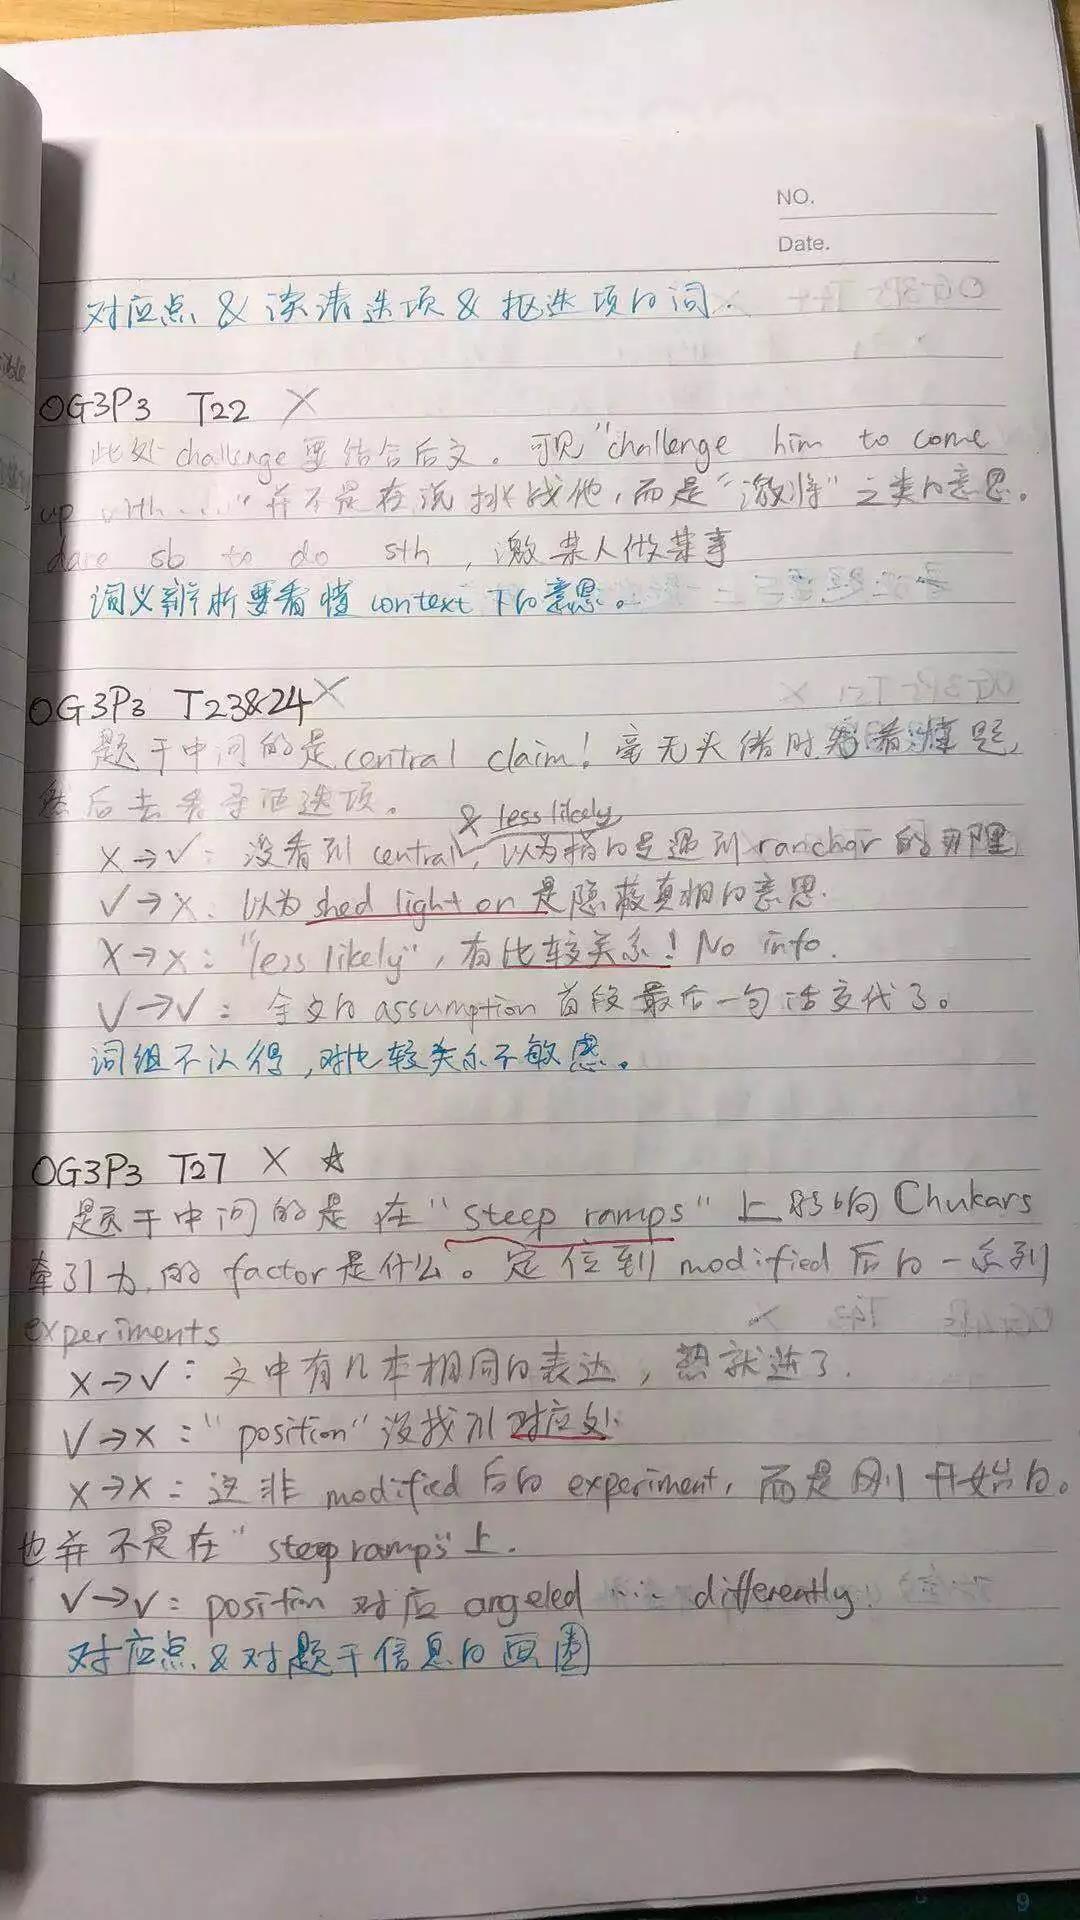 NO.
Date.
对应点 & 读清选项 & 抠选项的词.
OG3P3 T22 X
此处 challenge 要结合后文。可见“challenge him to come
up with....”并不是在说挑战他,而是“激将”之类的意思。
dare sb to do sth, 激某人做某事
词义辨析要看懂 context 下的意思。
OG3P3 T23&24 X
题干中问的是 central claim! 毫无头绪时 看懂题,
然后去 选项。
& less likely
X→√: 没看到 central, 以为指的是遇到 ranchor 的那里
√→X: 以为 shed light on 是隐蔽真相的意思.
X→X: “less likely”, 有比较关系! No info.
√→√: 全文的 assumption 首段最后一句话交代了。
词组不认得, 对比较关系不敏感。
OG3P3 T27 X ☆
题干中问的是 在“steep ramps”上影响 Chukars
牵引力 的 factor 是什么。定位到 modified 后的一系列
experiments
X→√: 文中有几本相同的表达, 就选了.
√→X: “position”没找到对应处.
X→X: 这非 modified 后的 experiment, 而是刚开始的。
也并不是在“steep ramps”上.
√→√: position 对应 angeled ... differently.
对应点 & 对题干信息的画圈
9